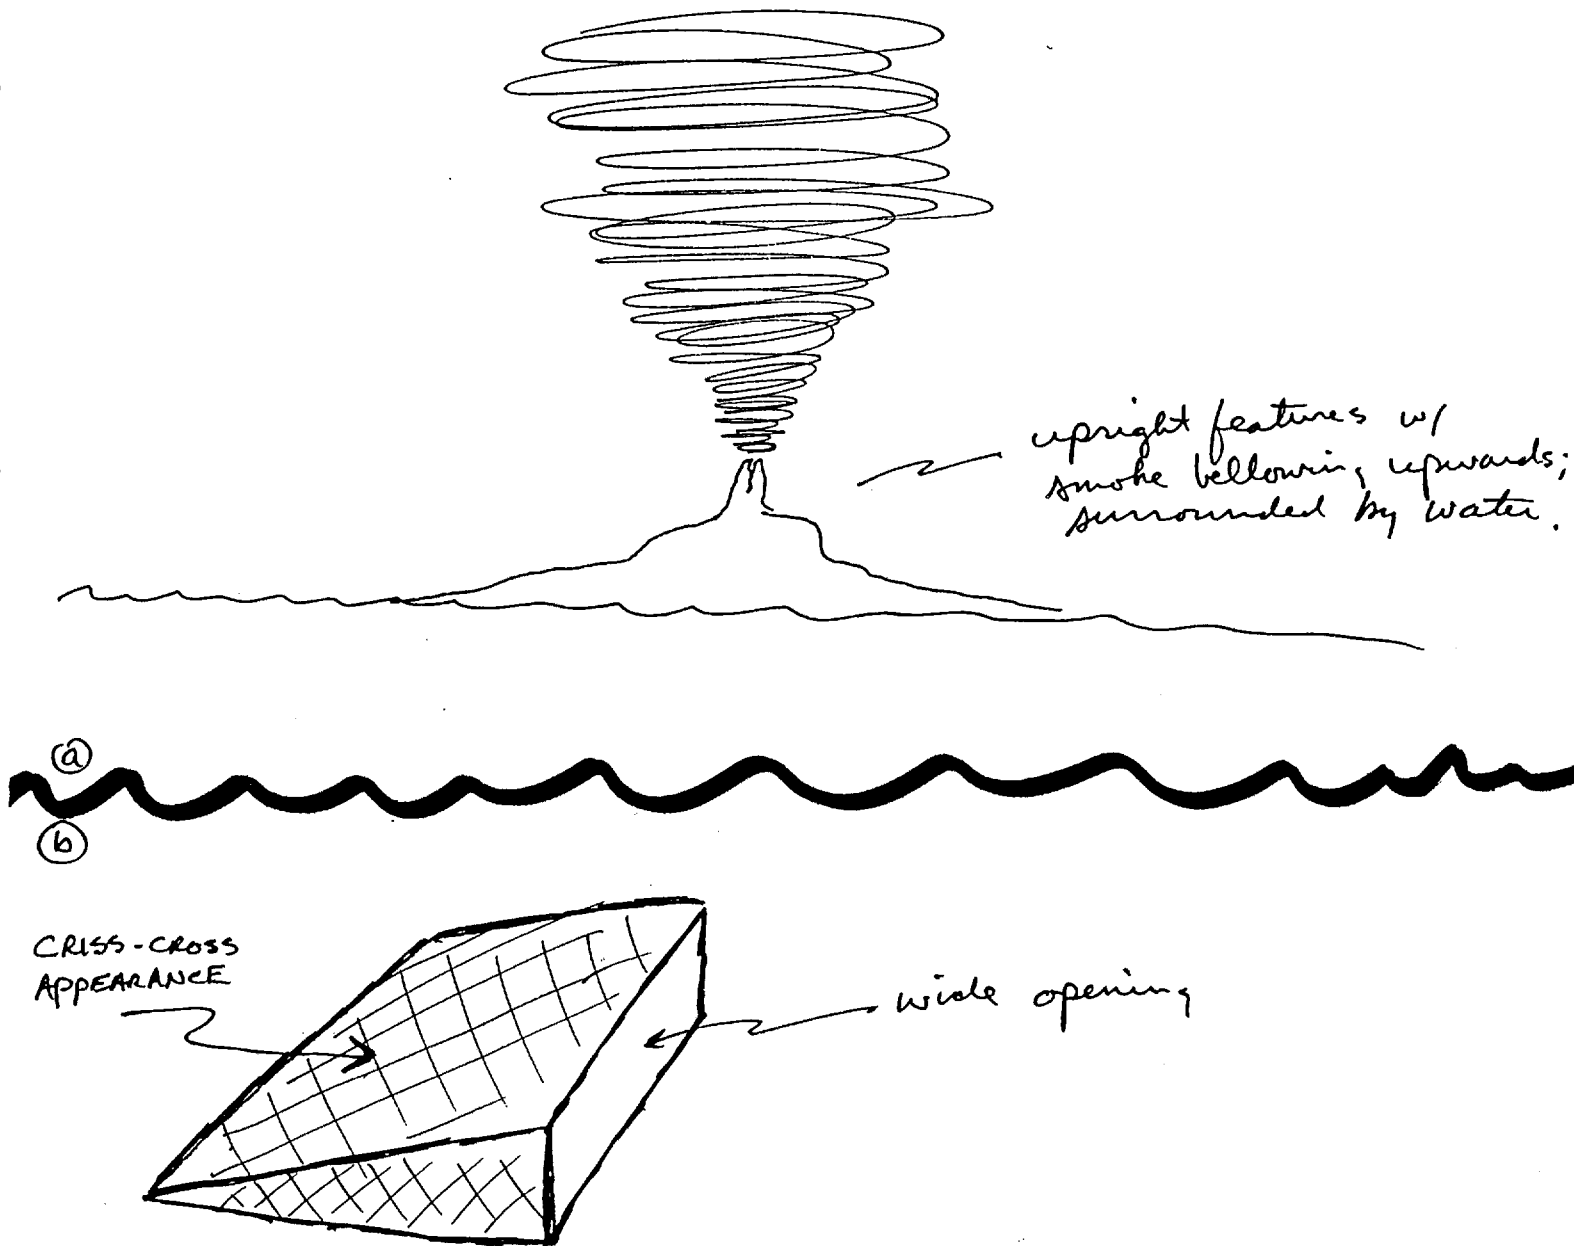 upright features w/
smoke bellowing upwards;
surrounded by water.
a
b
CRISS-CROSS
APPEARANCE
wide opening